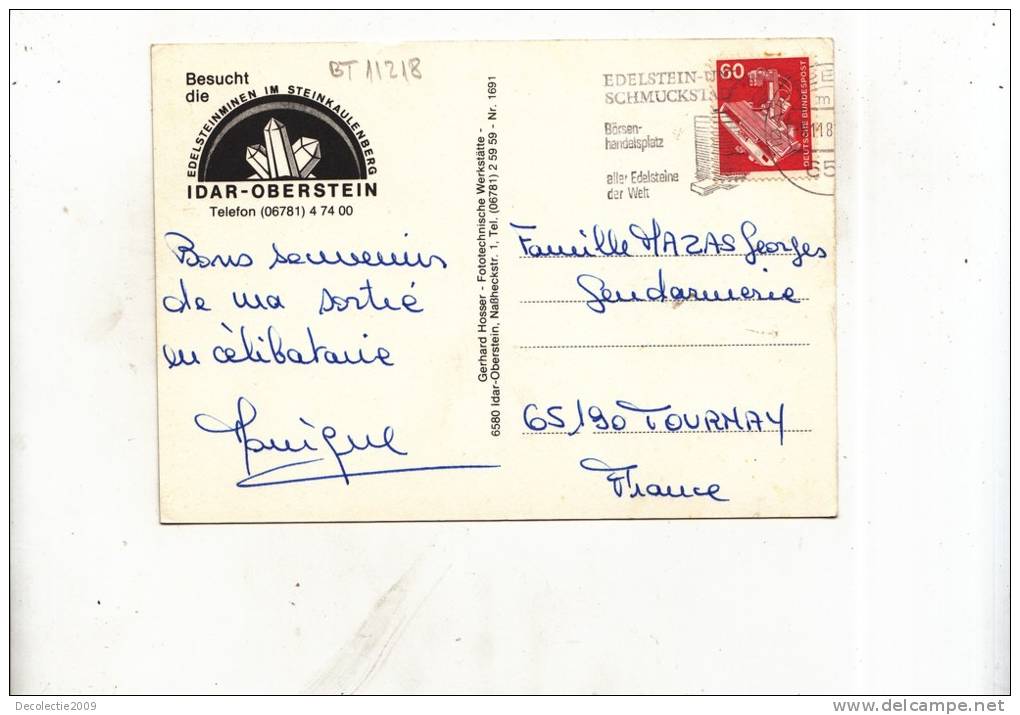 BT 11218
Besucht
die
EDELSTEINMINEN IM STEINKAULENBERG
IDAR-OBERSTEIN
Telefon (06781) 4 74 00
Bons souvenirs
de ma sortie
en célibataire
Gerhard Hosser - Fototechnische Werkstätte -
6580 Idar-Oberstein, Naßheckstr. 1, Tel. (06781) 2 59 59 - Nr. 1691
EDELSTEIN-U
SCHMUCKST
Börsen-
handelsplatz
aller Edelsteine
der Welt
60
DEUTSCHE BUNDESPOST
65
Famille MAZAS Georges
Gendarmerie
65190 TOURNAY
France
Decolectie2009
www.delcampe.net